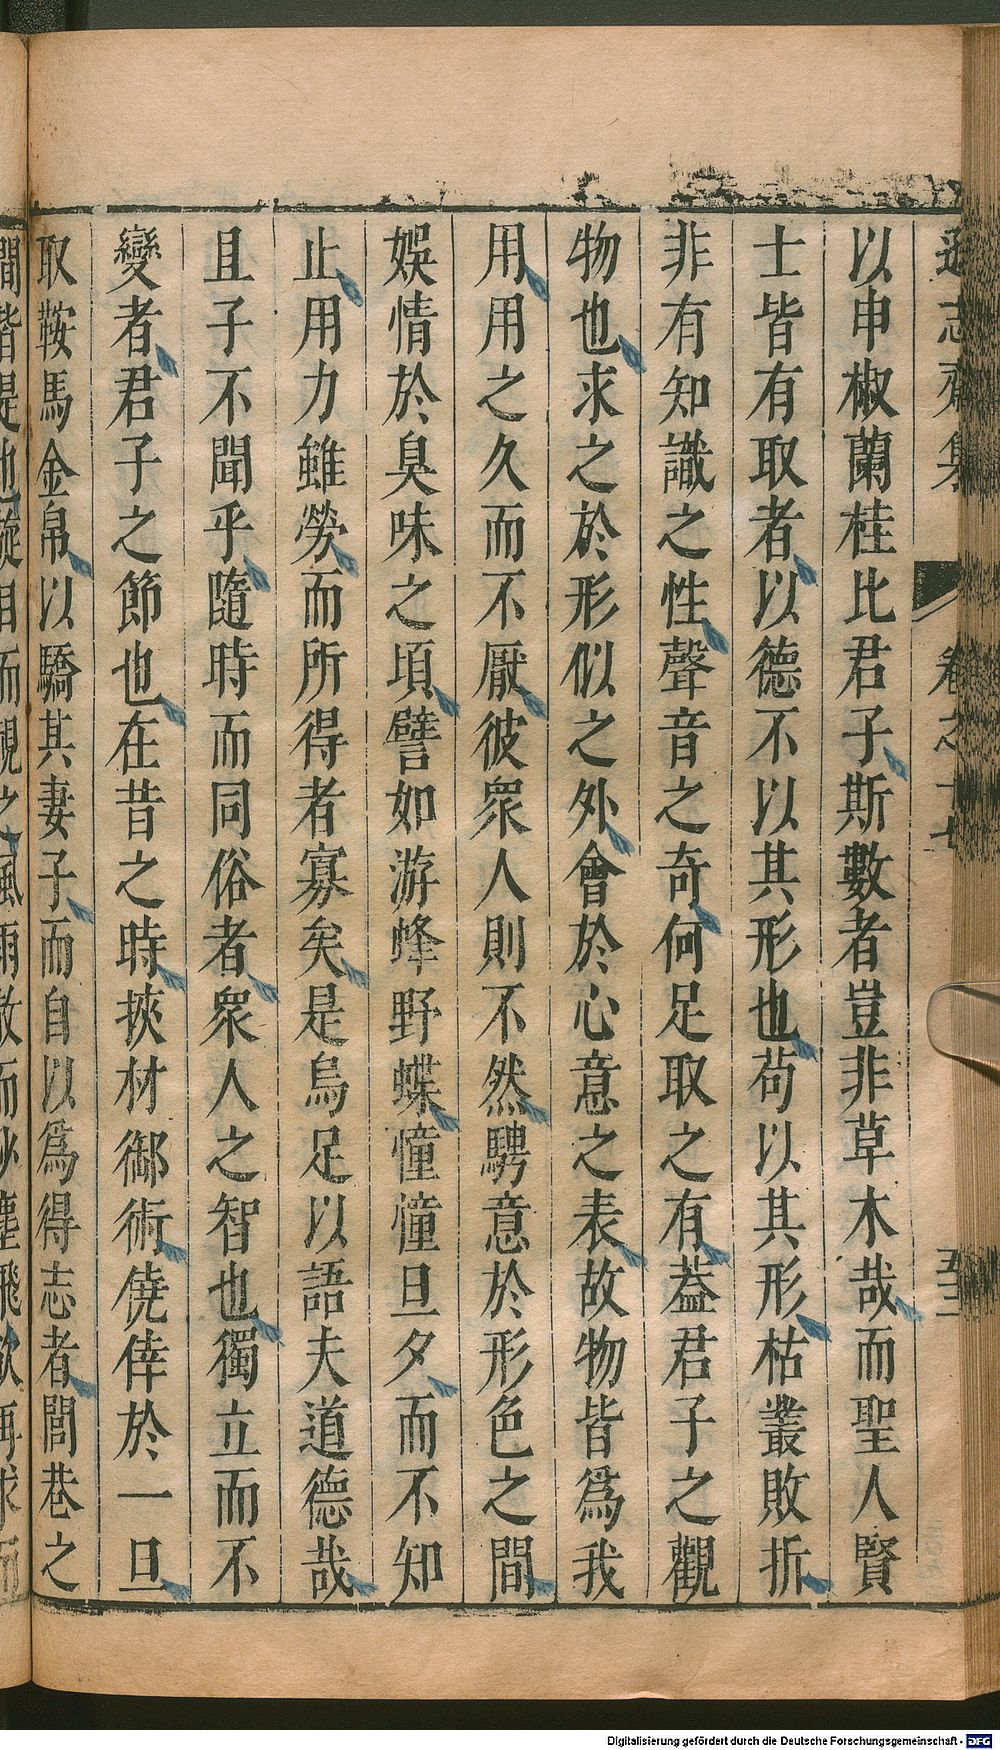 遜志齋集 卷之十七 五二
以申椒蘭桂比君子斯數者豈非草木哉而聖人賢
士皆有取者以德不以其形也苟以其形枯叢敗折
非有知識之性聲音之奇何足取之有蓋君子之觀
物也求之於形似之外會於心意之表故物皆爲我
用用之久而不厭彼眾人則不然騁意於形色之間
娛情於臭味之頃譬如游蜂野蝶憧憧旦夕而不知
止用力雖勞而所得者寡矣是烏足以語夫道德哉
且子不聞乎隨時而同俗者眾人之智也獨立而不
變者君子之節也在昔之時挾材御術僥倖於一旦
取鞍馬金帛以驕其妻子而自以爲得志者閭巷之
間皆是也旋目而視之風雨散而沙塵飛欲再求而
Digitalisierung gefördert durch die Deutsche Forschungsgemeinschaft - DFG